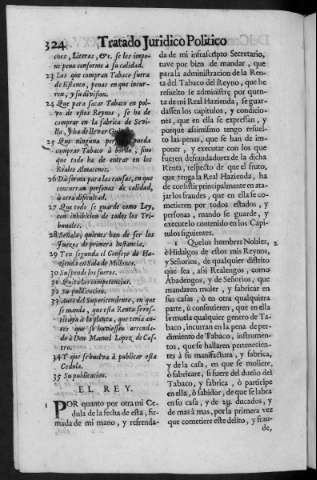 324 Tratado Juridico Politico
ches, Literas, &c. se les impone
pena conforme à su calidad.
23 Los que compran Tabaco fuera
de Estanco, penas en que incurren,
y su division.
24 Que para sacar Tabaco en polvo
de estos Reynos, se ha de
comprar en la fabrica de Sevilla,
25 Que ninguna
comprar Tabaco
que todo ha de entrar en los
Reales Almacenes.
26 Da forma para las causas, en que
concurran personas de calidad,
ù otra dificultad.
27 Que todo se guarde como Ley,
con inhibicion de todos los Tribunales.
28 Señala, quienes han de ser los
Juezes de primera instancia.
29 Y en segunda el Consejo de Hazienda
en Sala de Millones.
30 Suspende los fueros.
31 Quita las competencias.
32 Su publicacion.
33 Auto del Superintendente, en que
se manda, que esta Renta
à la planta, que tenia antes
que se huviesse arrendado
à Don Manuel Lopez de Castro.
34 Y que se buelva à publicar esta
Cedula.
35 Su publicacion.
EL REY.
1 POR quanto por otra mi Cedula
de la fecha de esta, firmada
de mi mano, y refrendada
de mi infrascripto Secretario,
tuve por bien de mandar, que
para la administracion de la Renta
del Tabaco del Reyno, que he
resuelto se administre por quenta
de mi Real Hazienda, se guardassen
los capitulos, y condiciones,
que en ella se expressan, y
porque assimismo tengo resuelto
las penas, que se han de imponer,
y executar con los que
fueren defraudadores de la dicha
Renta, respecto de que el fruto,
que tenga la Real Hazienda, ha
de consistir principalmente en atajar
los fraudes, que en ella se cometieren
por todos estados, y
personas, mando se guarde, y
execute lo contenido en los Capitulos
siguientes.
1 Que los hombres Nobles, 2
ò Hidalgos de estos mis Reynos,
y Señorios, de qualquier distrito
que sea, assi Realengos, como
Abadengos, y de Señorios, que
mandaren moler, y fabricar en
sus casas, ò en otra qualquiera
parte, ò consintieren, que en ella
se muela qualquier genero de Tabaco,
incurran en la pena de perdimiento
de Tabaco, instrumentos,
que se hallaren pertenecientes
à su manifactura, y fabrica,
y de la casa, en que se moliere,
ò fabricare, si fuere del dueño del
Tabaco, y fabrica, ò participe
en ella, ò sabidor, de que se labra
en su casa, y de 2y. ducados, y
de mas à mas, por la primera vez
que cometiere este delito, y fraude,